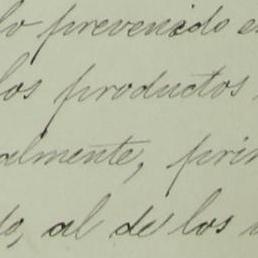 lo prevenido e
los productos
almente, prin
do, al de los